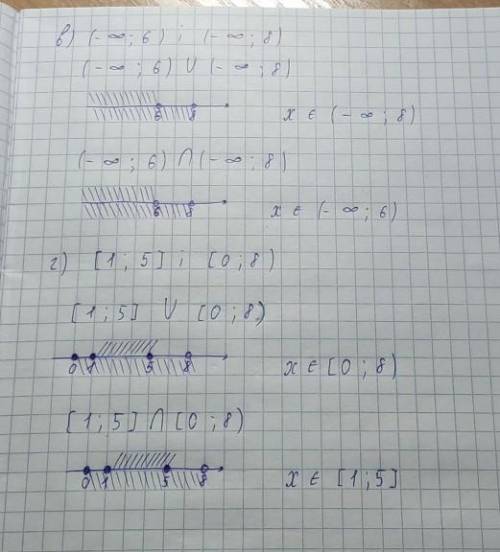 в) (-∞; 6) ; (-∞; 8)
(-∞; 6) ∪ (-∞; 8)
6 8 x ∈ (-∞; 8)
(-∞; 6) ∩ (-∞; 8)
6 8 x ∈ (-∞; 6)
г) [1; 5] ; [0; 8)
[1; 5] ∪ [0; 8)
0 1 5 8 x ∈ [0; 8)
[1; 5] ∩ [0; 8)
0 1 5 8 x ∈ [1; 5]